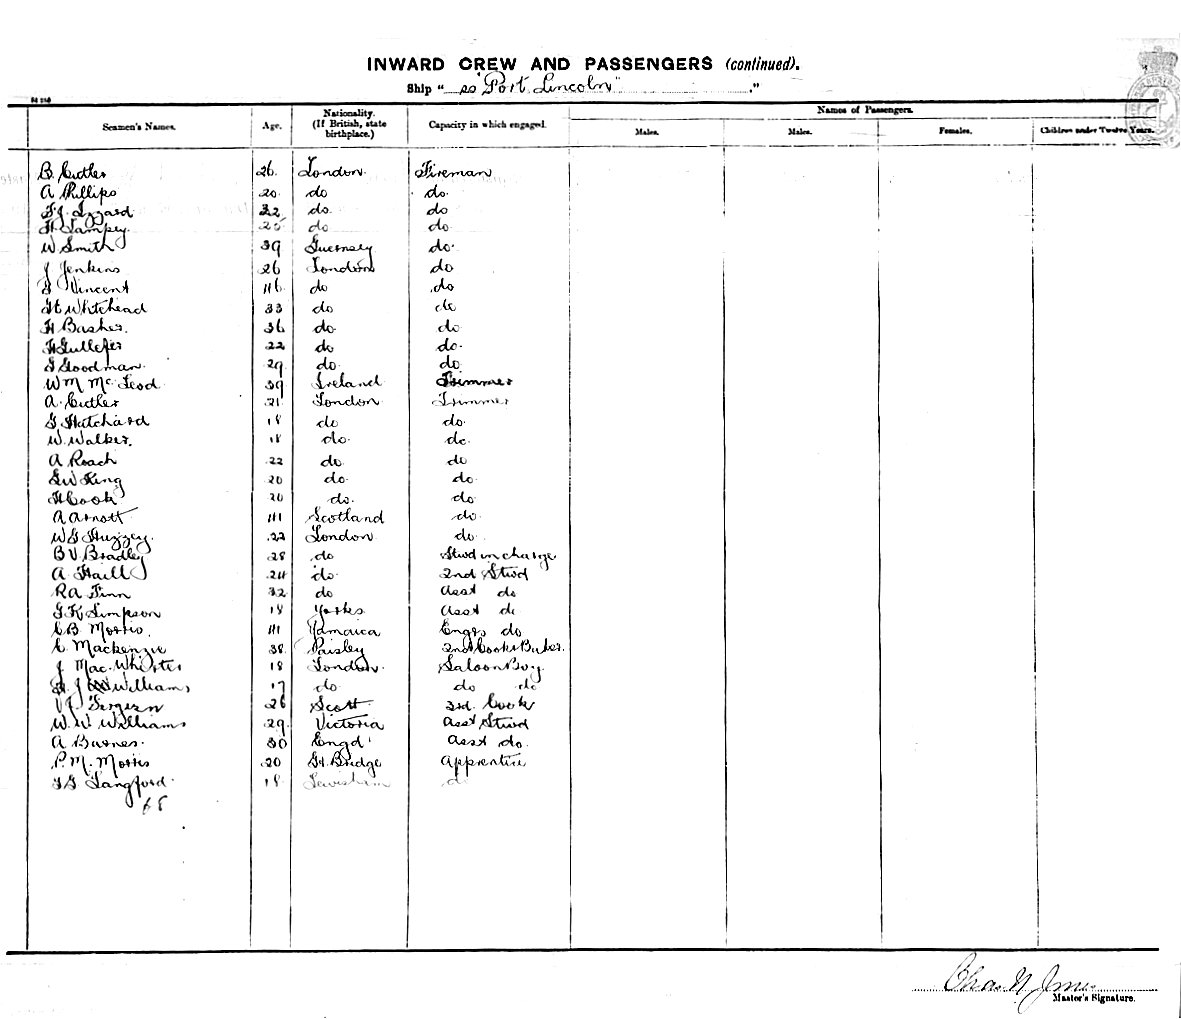 INWARD CREW AND PASSENGERS (continued).
Ship " ss "Port Lincoln" ."
Seamen's Names. Age. Nationality. (If British, state birthplace.) Capacity in which engaged. Names of Passengers.
Males. Males. Females. Children under Twelve Years.
B. Cutler 26 London Fireman
A Phillips 20 do do
F.J. Izzard 32 do do
H. Lampey 25 do do
W Smith 39 Guernsey do
J Jenkins 26 London do
Vincent 46 do do
H Whitehead 33 do do
H Basher. 36 do do
H Gullefer 22 do do
Goodman 29 do do
WM McLeod 39 Ireland Trimmer
A. Cutler 21 London Trimmer
G Hatchard 18 do do
W. Walker. 18 do do
A Roach 22 do do
G W King 20 do do
H Cook 20 do do
A Arnott 41 Scotland do
W G Huzzey 22 London do
B V Bradley 28 do Stwd in charge
A Haill 24 do 2nd Stwd
R A Finn 32 do Asst do
G K Simpson 18 Yorks Asst do
C B Morris. 41 Jamaica Engrs do
C. Mackenzie 38 Paisley 2nd Cook & Baker.
J Mac Whirter 18 London Saloon Boy
J Williams 17 do do do
V J 26 Scott 3rd Cook
W. W. Williams 29 Victoria Asst Stwd
A Barnes 30 Engd Asst do.
P. M. Morris 20 St Bridge Apprentice
Langford 18 Lewisham d
68
Chas N Jones
Master's Signature.